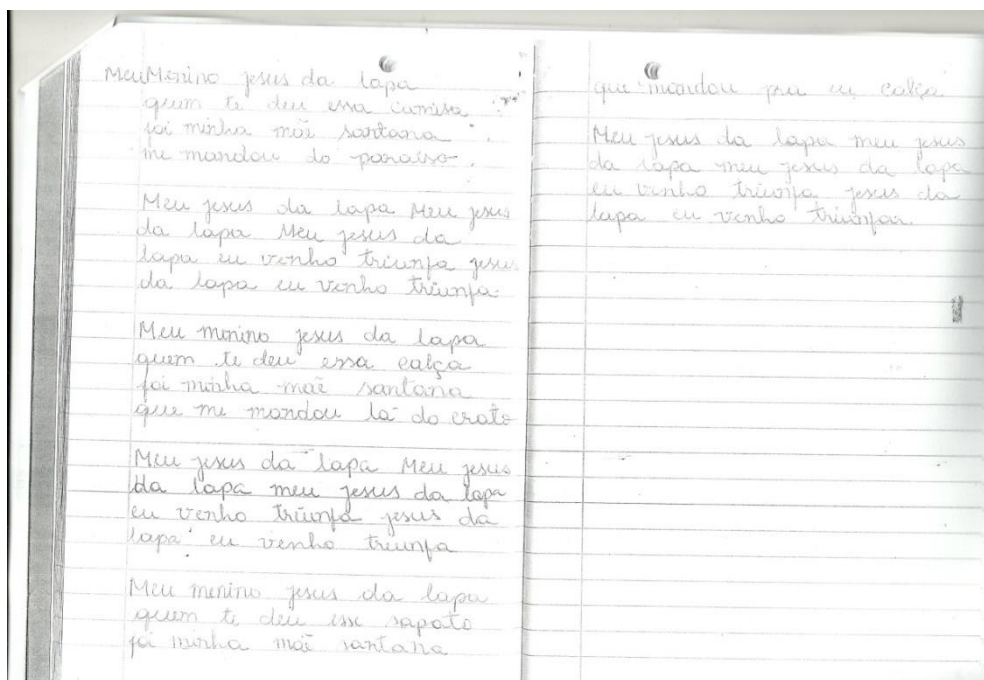 Meu Menino jesus da lapa
quem te deu essa camisa
foi minha mãe santana
me mandou do paraiso.
Meu jesus da lapa Meu jesus
da lapa Meu jesus da
lapa eu venho triunfa jesus
da lapa eu venho triunfa.
Meu menino jesus da lapa
quem te deu essa calça
foi minha mãe santana
que me mandou lá do crato
Meu jesus da lapa Meu jesus
da lapa meu jesus da lapa
eu venho triunfa jesus da
lapa eu venho triunfa
Meu menino jesus da lapa
quem te deu esse sapato
foi minha mãe santana
que mandou pra eu calça
Meu jesus da lapa meu jesus
da lapa meu jesus da lapa
eu venho triunfa jesus da
lapa eu venho triunfar.